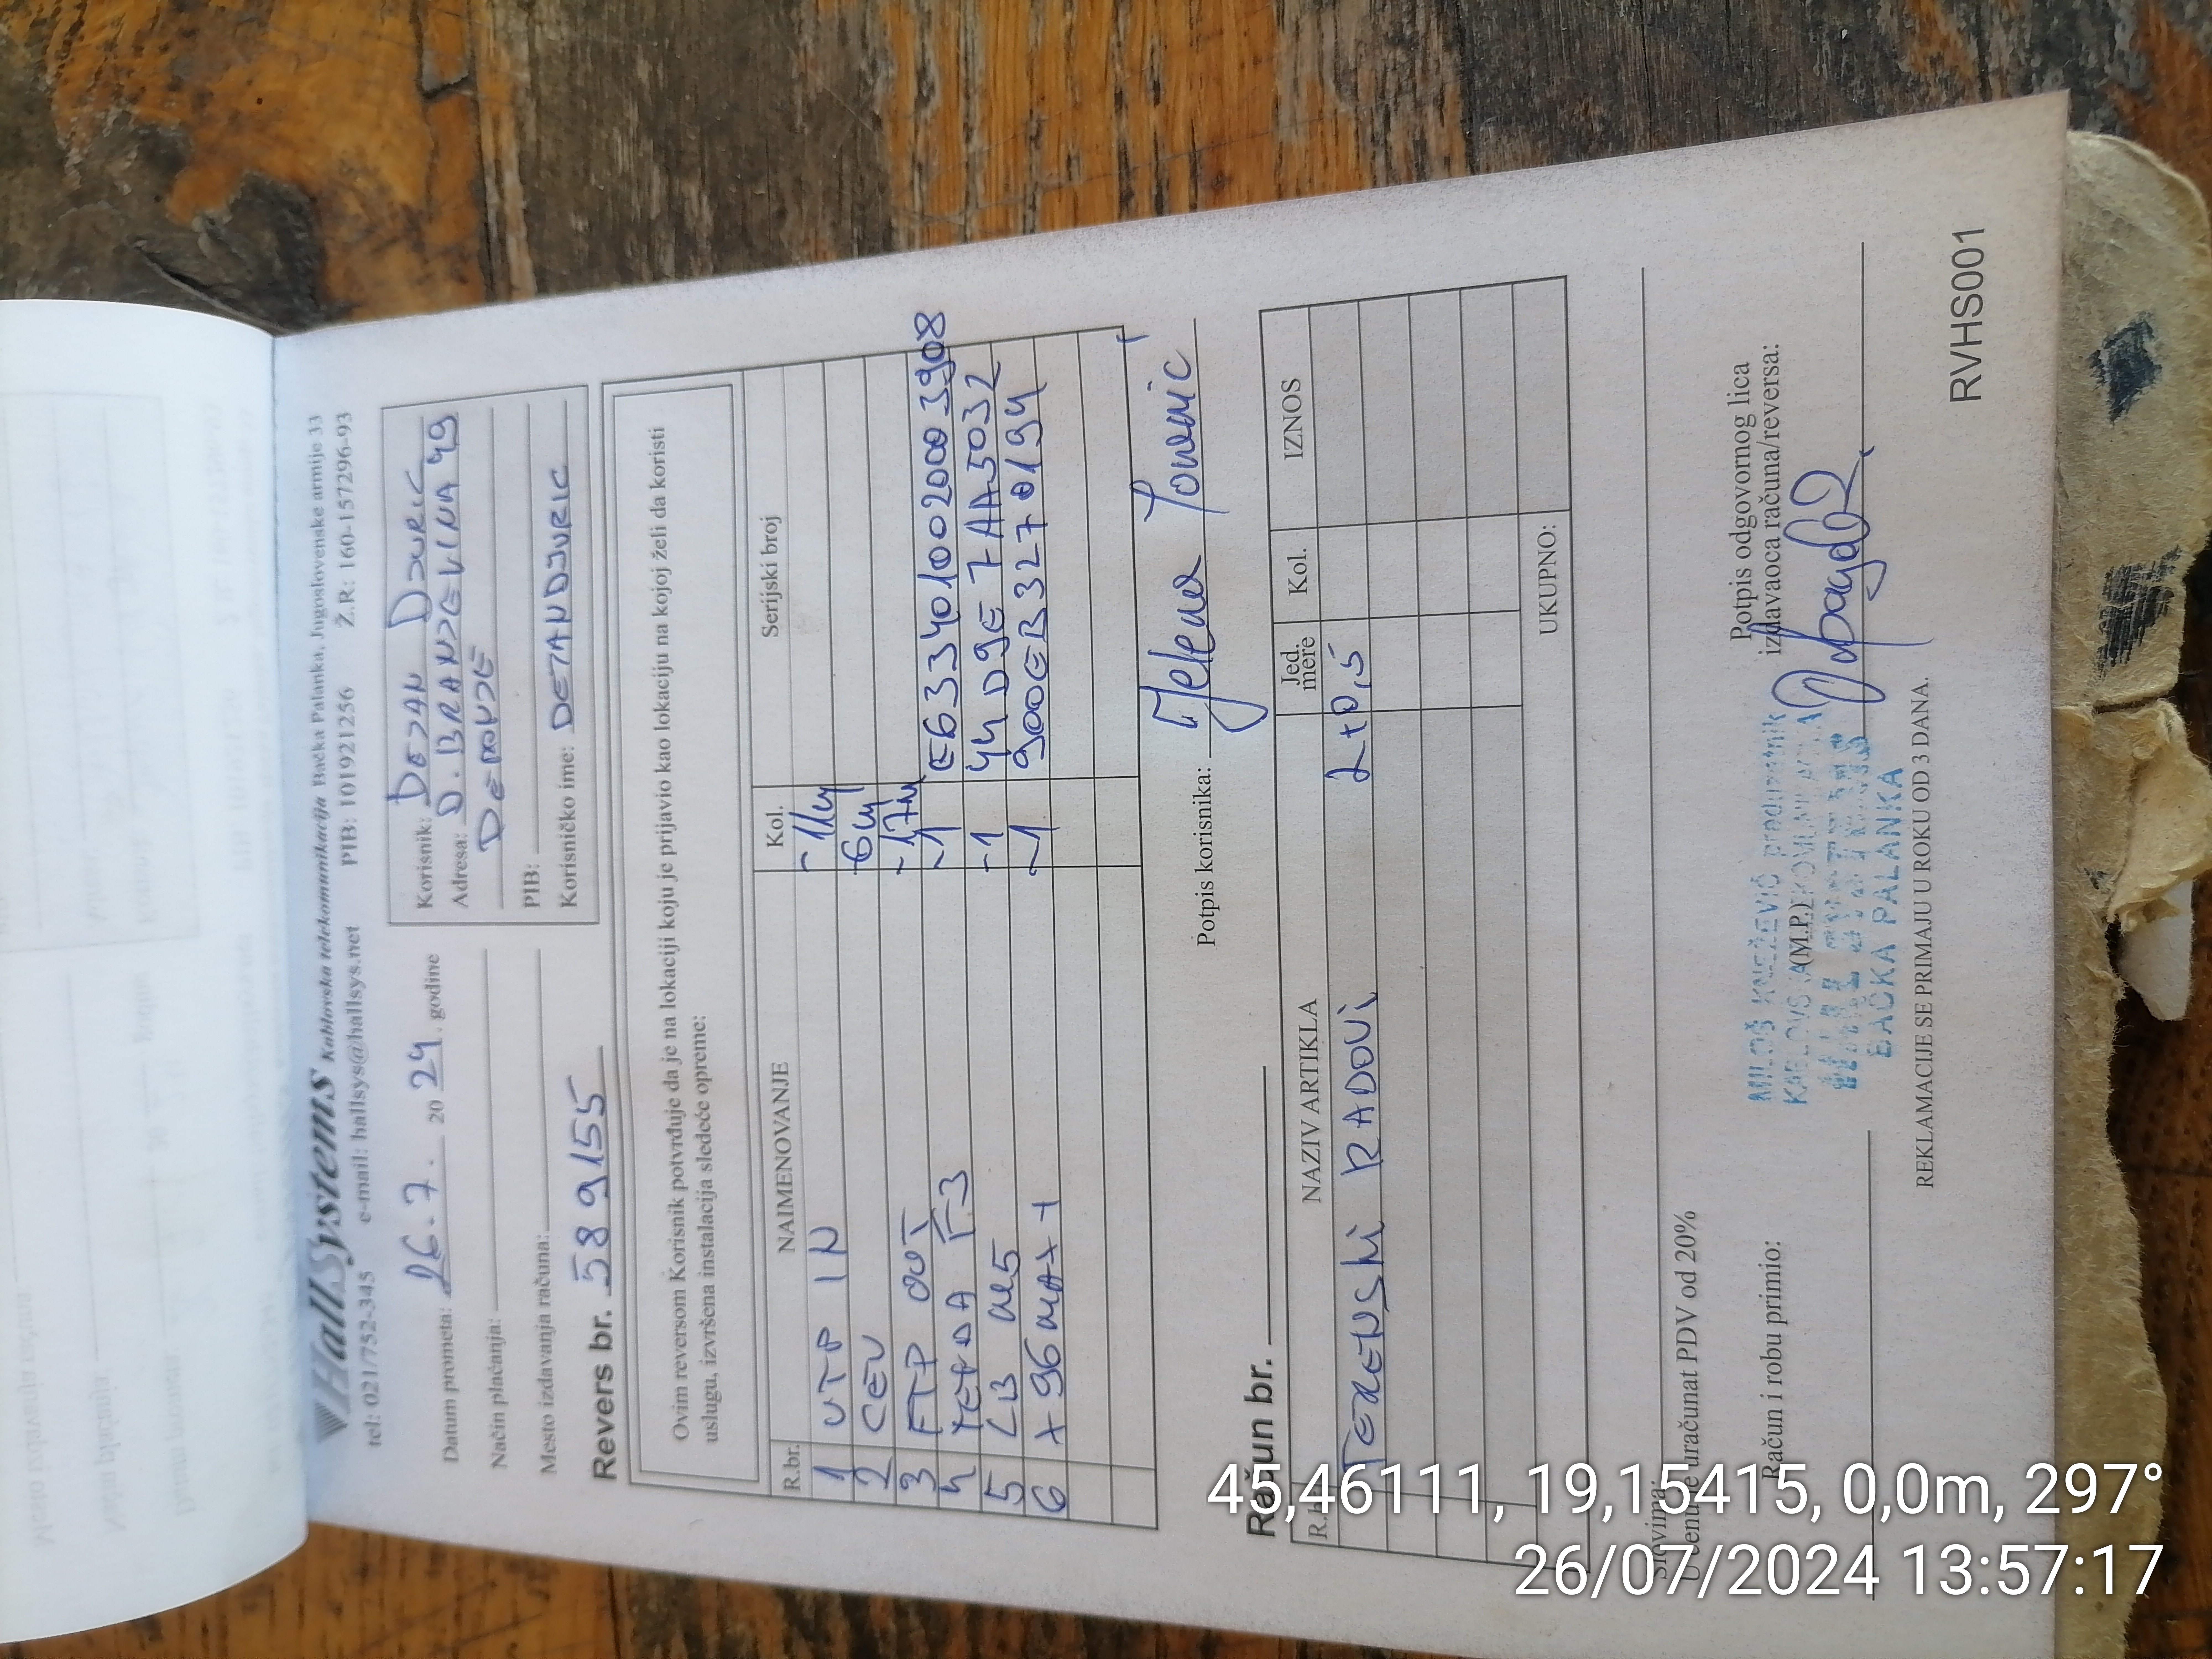 HallSystems Kablovska telekomunikacija Bačka Palanka, Jugoslovenske armije 33
tel: 021/752-345 e-mail: hallsys@hallsys.net PIB: 101921256 Ž.R: 160-157296-93
Datum prometa: 26.7. 2024. godine
Način plaćanja:
Mesto izdavanja računa:
Revers br. 589155
Korisnik: DEJAN DJURIC
Adresa: D. BRANJEVINA 49
DERONJE
PIB:
Korisničko ime: DEJANDJURIC
Ovim reversom Korisnik potvrđuje da je na lokaciji koju je prijavio kao lokaciju na kojoj želi da koristi
uslugu, izvršena instalacija sledeće opreme:
R.br. NAIMENOVANJE Kol. Serijski broj
1 UTP IN -11m
2 CEV 6m
3 FTP OUT -17m
4 TENDA F3 -1 E6334010020003908
5 LB M5 -1 44D9E7AA5032
6 X96MAX+ -1 900EB3270194
Potpis korisnika: Jelena
Račun br.
R.br. NAZIV ARTIKLA Jed. mere Kol. IZNOS
TERENSKI RADOVI 2+0,5
UKUPNO:
Slovima
U cenu je uračunat PDV od 20%
Račun i robu primio:
(M.P.)
Potpis odgovornog lica
izdavaoca računa/reversa:
MILOŠ KNEŽEVIĆ preduzetnik
BAČKA PALANKA
REKLAMACIJE SE PRIMAJU U ROKU OD 3 DANA.
RVHS001
45,46111, 19,15415, 0,0m, 297°
26/07/2024 13:57:17